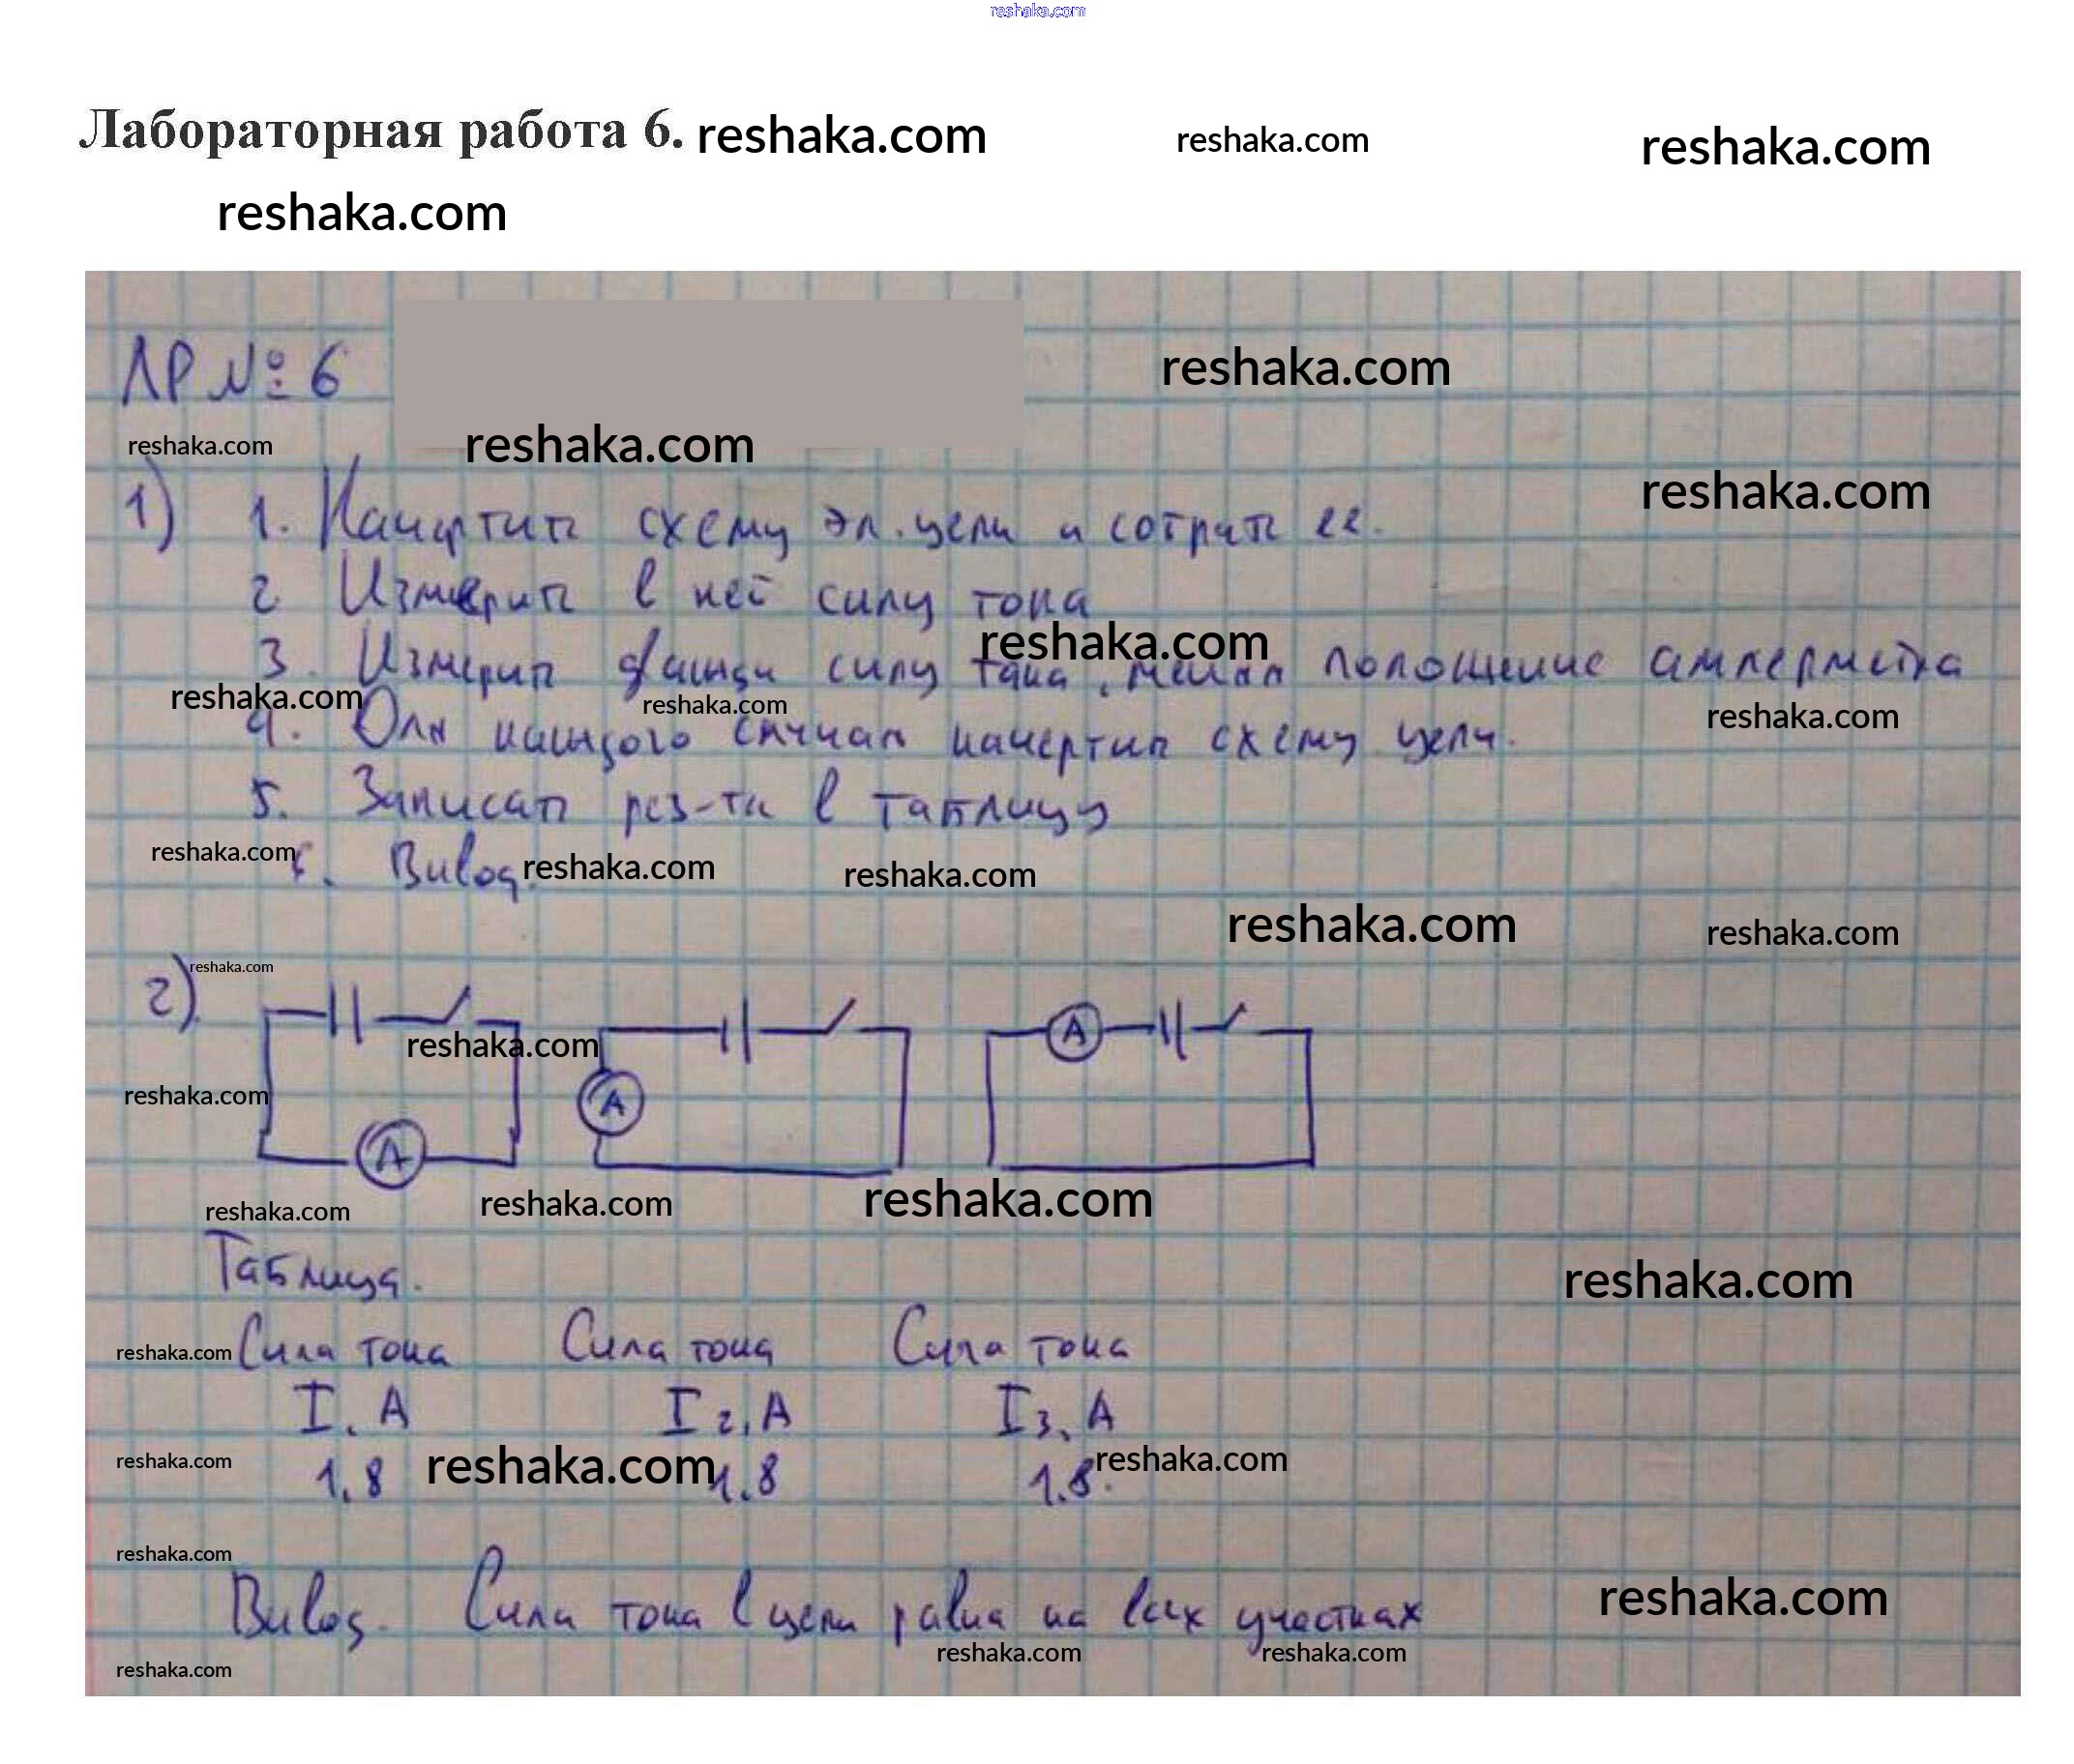 reshaka.com
Лабораторная работа 6. reshaka.com reshaka.com reshaka.com
reshaka.com
ЛР № 6 reshaka.com
reshaka.com reshaka.com
1) 1. Начертить схему эл. цепи и собрать ее. reshaka.com
2 Измерить в ней силу тока
reshaka.com
3. Измерить силу тока, меняя положение амперметра
reshaka.com reshaka.com reshaka.com
4. Для каждого случая начертить схему цепи.
5. Записать рез-ты в таблицу
reshaka.com 6. Вывод. reshaka.com reshaka.com
reshaka.com reshaka.com
2) reshaka.com
A
reshaka.com
reshaka.com A
A
reshaka.com reshaka.com reshaka.com
Таблица. reshaka.com
reshaka.com Сила тока Сила тока Сила тока
I, A I2, A I3, A
reshaka.com 1,8 reshaka.com 1,8 1,8. reshaka.com
reshaka.com
Вывод. Сила тока в цепи равна на всех участках reshaka.com
reshaka.com reshaka.com reshaka.com